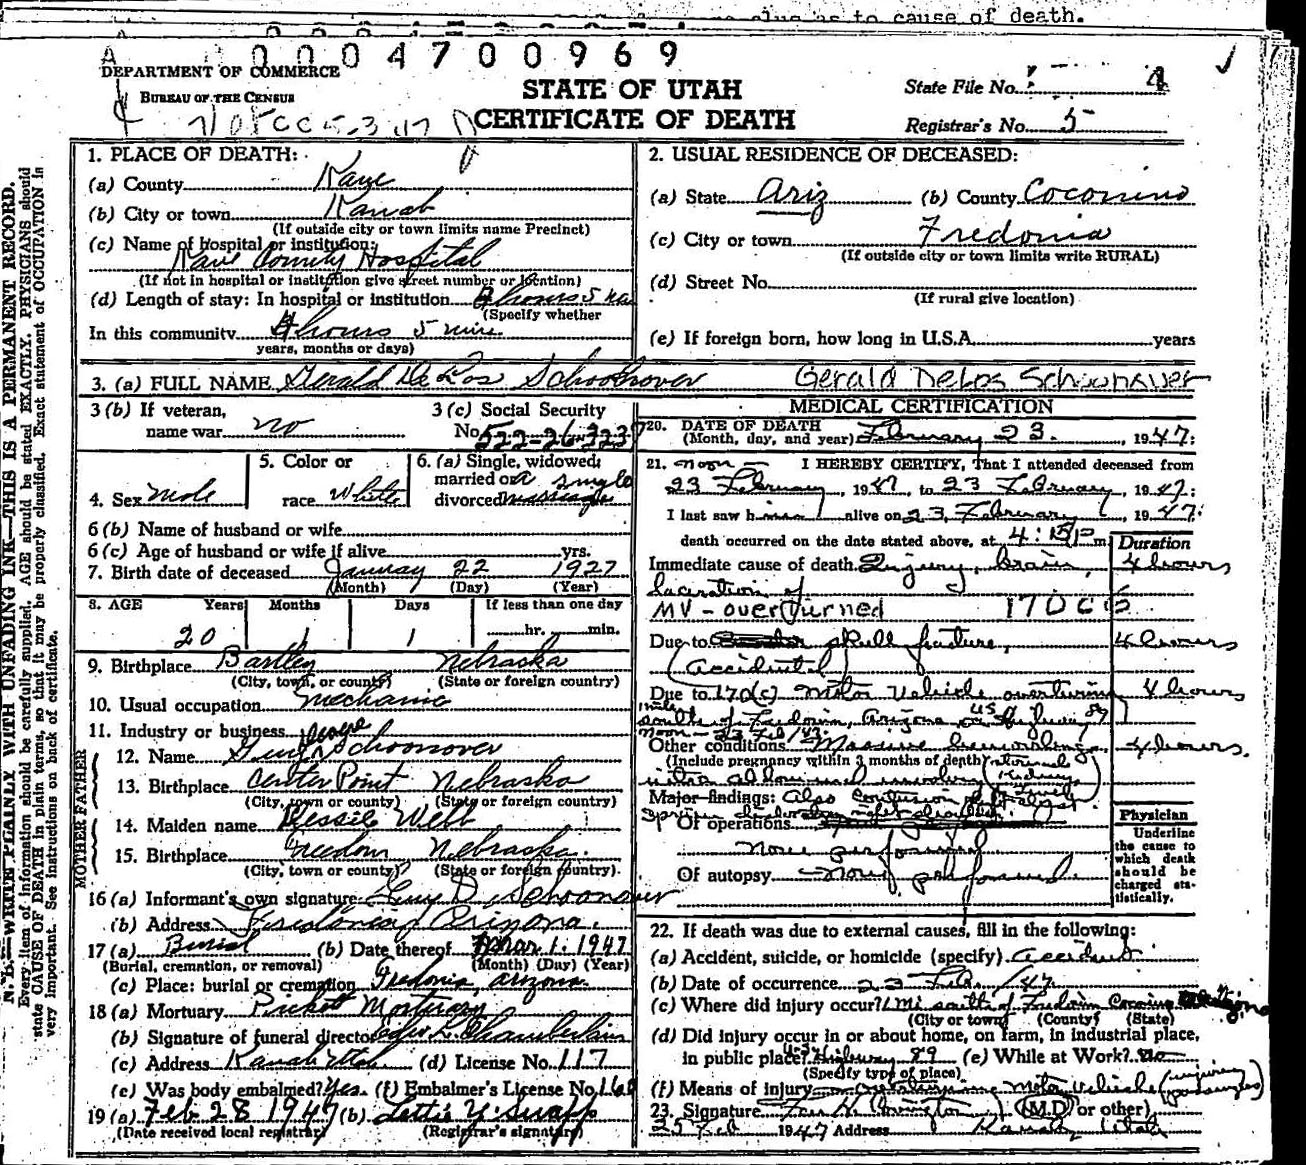 as to cause of death.
0004700969
DEPARTMENT OF COMMERCE
BUREAU OF THE CENSUS
STATE OF UTAH
CERTIFICATE OF DEATH
State File No. 4
Registrar's No. 5
1. PLACE OF DEATH:
(a) County Kane
(b) City or town Kanab
(If outside city or town limits name Precinct)
(c) Name of hospital or institution:
Kane County Hospital
(If not in hospital or institution give street number or location)
(d) Length of stay: In hospital or institution 4 hours 5
(Specify whether
In this community 4 hours 5 min.
years, months or days)
2. USUAL RESIDENCE OF DECEASED:
(a) State Ariz (b) County Coconino
(c) City or town Fredonia
(If outside city or town limits write RURAL)
(d) Street No.
(If rural give location)
(e) If foreign born, how long in U.S.A. years
3. (a) FULL NAME Gerald De Los Schoonover Gerald DeLos Schoonover
3 (b) If veteran,
name war. no
3 (c) Social Security
No. 522-26-3237
4. Sex male
5. Color or
race White
6. (a) Single, widowed,
married or single
divorced
6 (b) Name of husband or wife
6 (c) Age of husband or wife if alive yrs.
7. Birth date of deceased January 22 1927
(Month) (Day) (Year)
8. AGE Years Months Days If less than one day
20 1 1 hr. min.
9. Birthplace Bartley Nebraska
(City, town, or county) (State or foreign country)
10. Usual occupation mechanic
11. Industry or business
FATHER
12. Name Schoonover
13. Birthplace Center Point Nebraska
(City, town or county) (State or foreign country)
MOTHER
14. Maiden name Bessie Webb
15. Birthplace Freedom Nebraska.
(City, town or county) (State or foreign country)
16 (a) Informant's own signature Guy D. Schoonover
(b) Address Fredonia, Arizona.
17 (a) Burial (b) Date thereof Mar 1. 1947
(Burial, cremation, or removal) (Month) (Day) (Year)
(c) Place: burial or cremation Fredonia, Arizona.
18 (a) Mortuary Mortuary
(b) Signature of funeral director Chamberlain
(c) Address Kanab Utah (d) License No. 117
(e) Was body embalmed? Yes. (f) Embalmer's License No. 160
19 (a) Feb 28 1947 (b)
(Date received local registrar) (Registrar's signature)
MEDICAL CERTIFICATION
20. DATE OF DEATH
(Month, day, and year) February 23. , 1947.
21. noon I HEREBY CERTIFY, That I attended deceased from
23 February, 1947, to 23 February, 1947;
I last saw him alive on 23, February, 1947;
death occurred on the date stated above, at 4:15 P m.
Duration
Immediate cause of death Injury, brain, 4 hours
laceration of
MV-overturned 170C6
Due to skull fracture, 4 hours
(accidental)
Due to 170(c) Motor Vehicle overturning 4 hours
south of Fredonia, Arizona, on US Highway 89
noon - 23 Feb/47.
Other conditions Massive hemorrhage 4 hours.
(Include pregnancy within 3 months of death)
intra abdominal involving
Major findings: Also contusion
Of operations
None performed
Of autopsy None performed.
Physician
Underline
the cause to
which death
should be
charged sta-
tistically.
22. If death was due to external causes, fill in the following:
(a) Accident, suicide, or homicide (specify) accident
(b) Date of occurrence 23 Feb./47.
(c) Where did injury occur? 1 Mi south of Fredonia Coconino Arizona
(City or town) (County) (State)
(d) Did injury occur in or about home, on farm, in industrial place,
in public place? U.S. Highway 89 (e) While at Work? no
(Specify type of place)
(f) Means of injury overturning motor vehicle (injuring passengers)
23. Signature (M.D. or other)
25 Feb 1947 Address Kanab, Utah
N. B.—WRITE PLAINLY WITH UNFADING INK—THIS IS A PERMANENT RECORD.
Every item of information should be carefully supplied. AGE should be stated EXACTLY. PHYSICIANS should
state CAUSE OF DEATH in plain terms, so that it may be properly classified. Exact statement of OCCUPATION is
very important. See instructions on back of certificate.